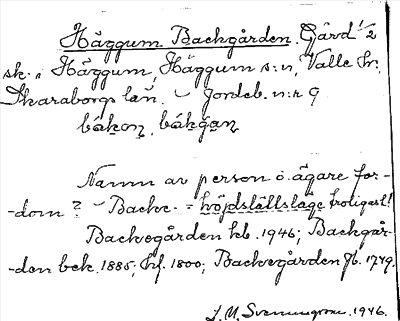 Häggum Backgården. Gård 1/2
sk. i Häggum, Häggum s:n, Valle hr.
Skaraborgs län. – Jordeb. n:r 9
Namn av person o. ägare för-
-dom? – Backe- = höjdslättsläge troligast!
Backegården hb. 1946; Backgår-
-den bek. 1885; hf. 1800; Backegården jb. 1719.
1946.